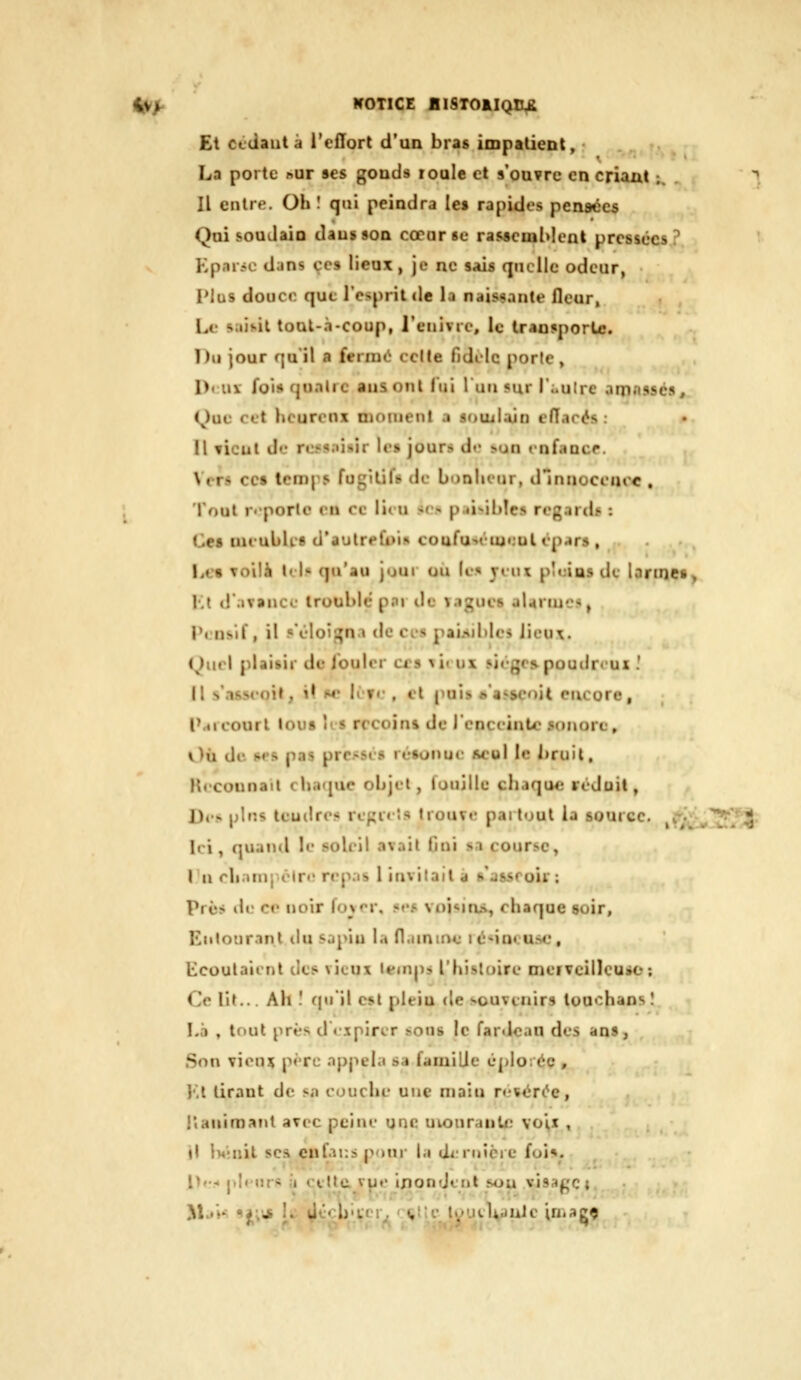 NOTICE HISTORIQUE
Et cédant à l'effort d'un bras impatient,
La porte sur ses gonds roule et s'ouvre en criant;
Il entre. Oh! qui peindra les rapides pensées
Qui soudain dans son cœur se rassemblent pressées?
Eparse dans ces lieux, je ne sais quelle odeur,
Plus douce que l'esprit de la naissante fleur,
Le saisit tout-à-coup, l'enivre, le transporte.
Du jour qu'il a fermé cette fidèle porte,
Deux fois quatre ans ont fui l'un sur l'autre amassés,
Que cet heureux moment a soudain effacés:
Il vient de ressaisir les jours de son enfance.
Vers ces temps fugitifs de bonheur, d'innocence,
Tout reporte en ce lieu ses paisibles regards:
Ces meubles d'autrefois confusément épars,
Les voilà tels qu'au jour où les yeux pleins de larmes,
Et d'avance troublé par de vagues alarmes,
Pensif, il s'éloigna de ces paisibles lieux.
Quel plaisir de fouler ces vieux siéges poudreux!
Il s'asseoit, il se lève, et puis s'asseoit encore,
Parcourt tous les recoins de l'enceinte sonore,
Où de ses pas pressés résonne seul le bruit,
Reconnait chaque objet, fouille chaque réduit,
Des plus tendres regrets trouve partout la source.
Ici, quand le soleil avait fini sa course,
Un champêtre repas l'invitait à s'asseoir:
Près de ce noir foyer, ses voisins, chaque soir,
Entourant du sapin la flamme résineuse,
Ecoutaient des vieux temps l'histoire merveilleuse;
Ce lit... Ah! qu'il est plein de souvenirs touchans!
Là, tout près d'expirer sous le fardeau des ans,
Son vieux père appela sa famille éplorée,
Et tirant de sa couche une main révérée,
Ranimant avec peine une mourante voix,
il bénit ses enfans pour la dernière fois.
Des pleurs à cette vue inondent son visage;
Mais sans le déchirer, cette touchante image